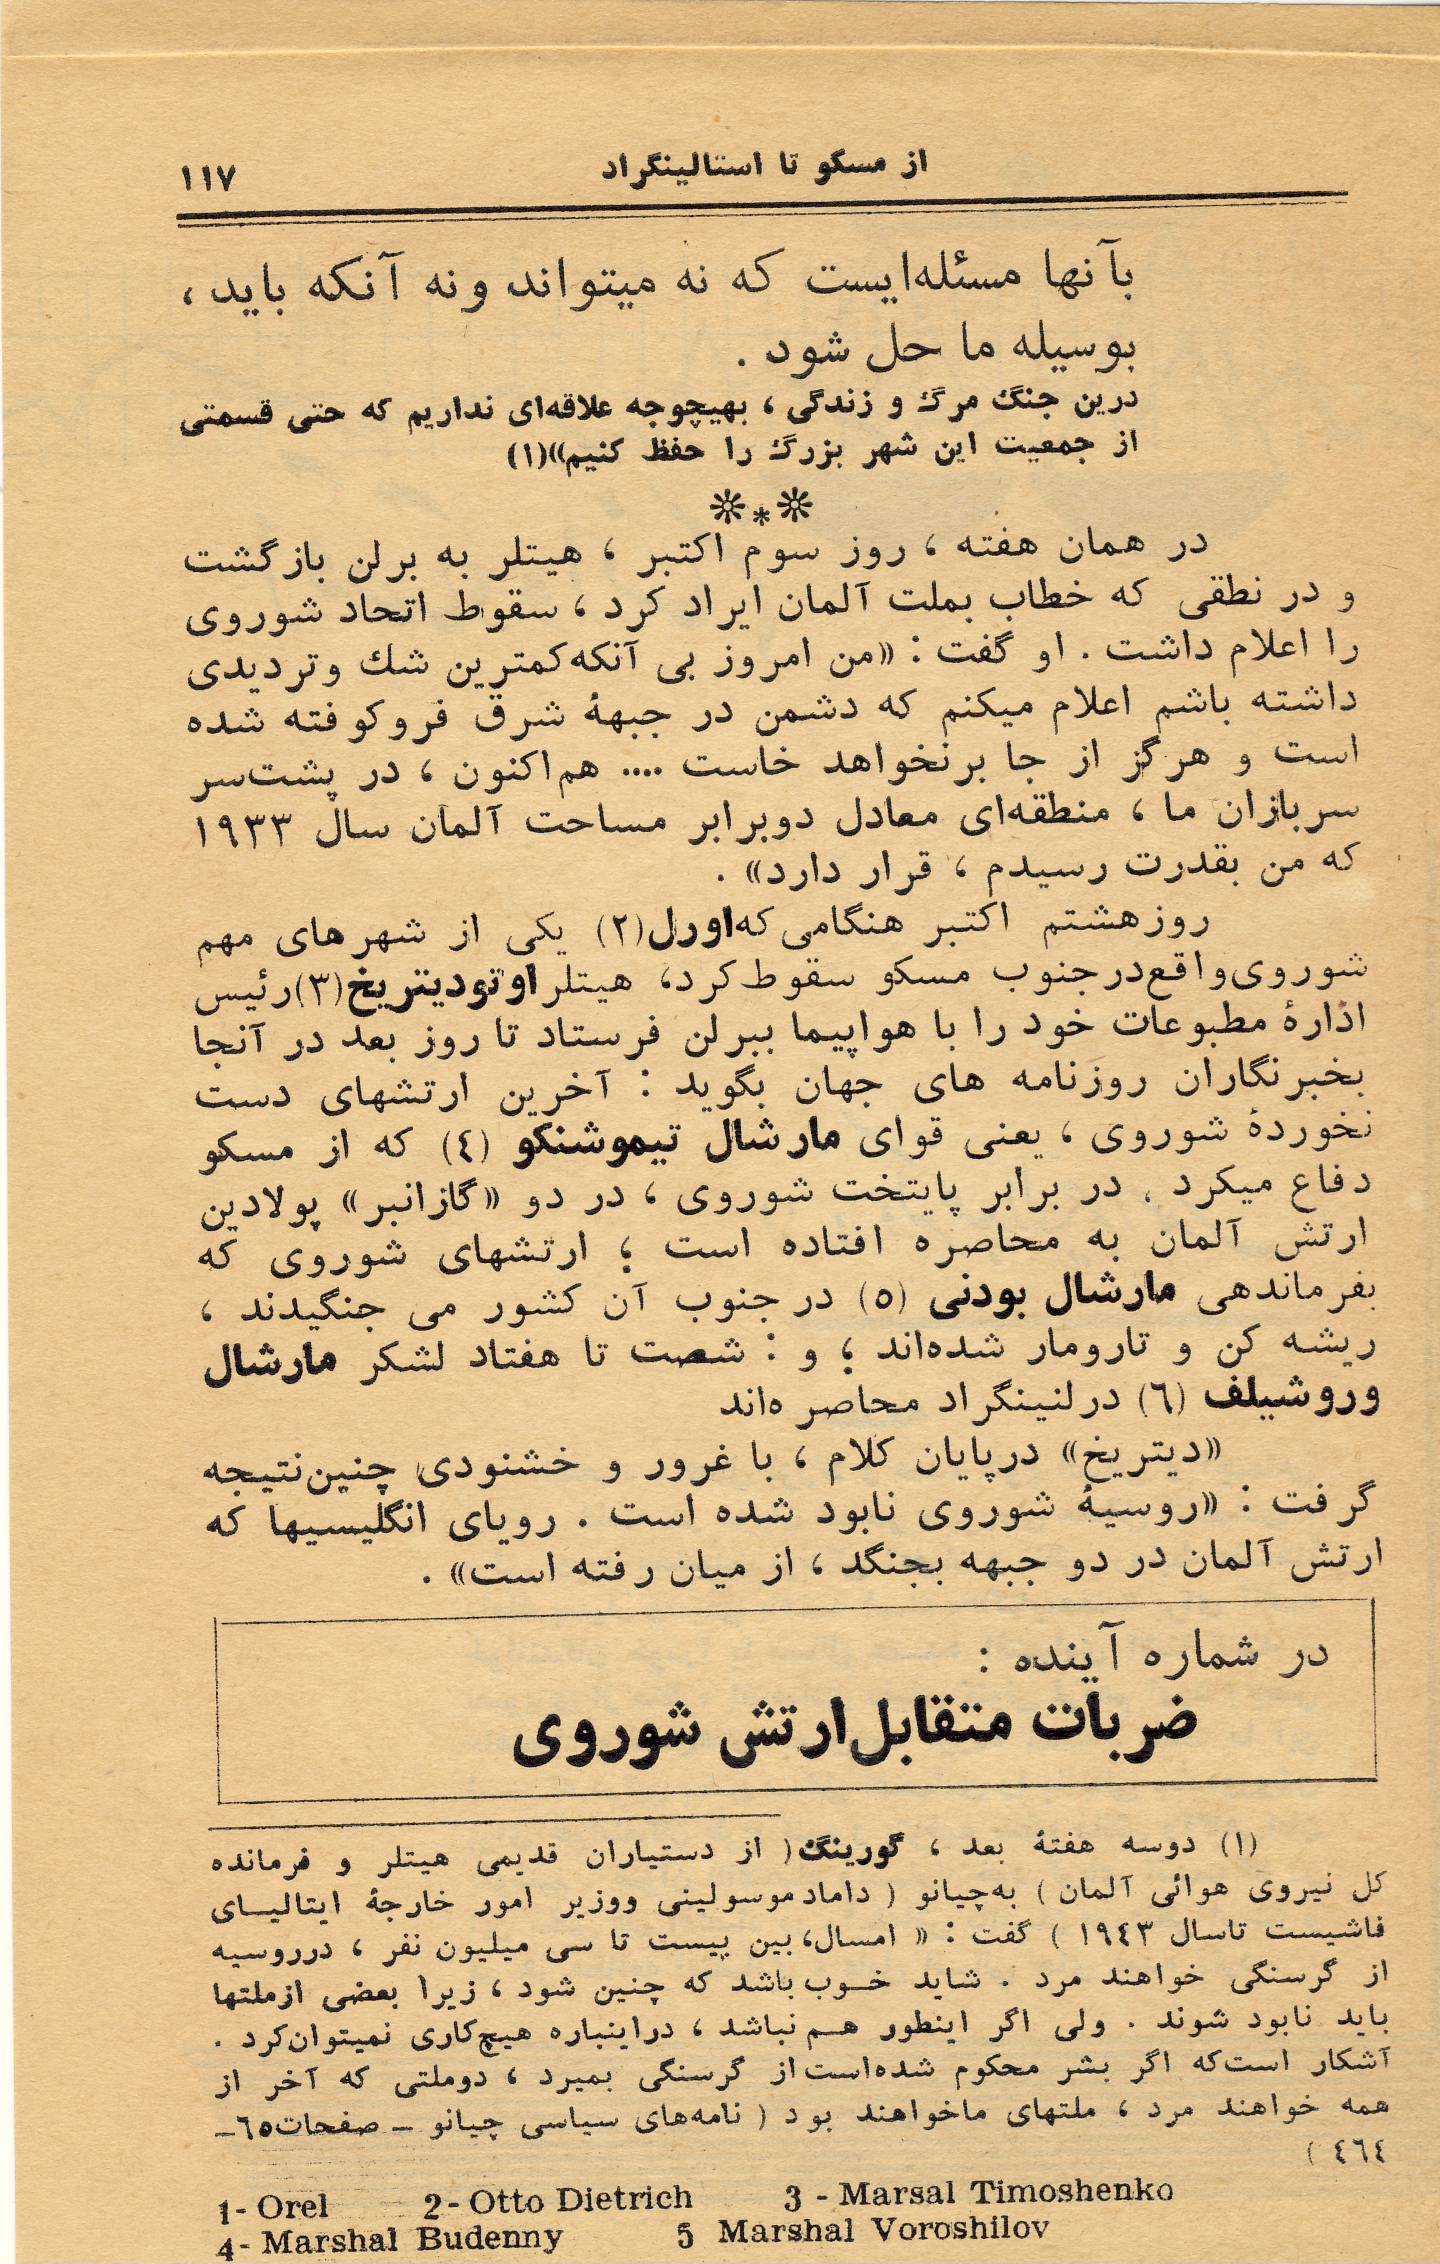 از مسکو تا استالینگراد
۱۱۷
بآنها مسئله‌ایست که نه میتواند ونه آنکه باید ،
بوسیله ما حل شود .
درین جنگ مرگ و زندگی ، بهیچوجه علاقه‌ای نداریم که حتی قسمتی
از جمعیت این شهر بزرگ را حفظ کنیم»(۱)
❊*❊
در همان هفته ، روز سوم اکتبر ، هیتلر به برلن بازگشت
و در نطقی که خطاب بملت آلمان ایراد کرد ، سقوط اتحاد شوروی
را اعلام داشت . او گفت : «من امروز بی آنکه کمترین شك وتردیدی
داشته باشم اعلام میکنم که دشمن در جبههٔ شرق فروکوفته شده
است و هرگز از جا برنخواهد خاست .... هم‌اکنون ، در پشت‌سر
سربازان ما ، منطقه‌ای معادل دوبرابر مساحت آلمان سال ۱۹۳۳
که من بقدرت رسیدم ، قرار دارد» .
روزهشتم اکتبر هنگامی که اورل(۲) یکی از شهرهای مهم
شوروی واقع در جنوب مسکو سقوط کرد، هیتلر اوتودیتریخ(۳) رئیس
ادارهٔ مطبوعات خود را با هواپیما ببرلن فرستاد تا روز بعد در آنجا
بخبرنگاران روزنامه های جهان بگوید : آخرین ارتشهای دست
نخوردهٔ شوروی ، یعنی قوای مارشال تیموشنکو (٤) که از مسکو
دفاع میکرد ، در برابر پایتخت شوروی ، در دو «گازانبر» پولادین
ارتش آلمان به محاصره افتاده است ؛ ارتشهای شوروی که
بفرماندهی مارشال بودنی (٥) در جنوب آن کشور می جنگیدند ،
ریشه کن و تارومار شده‌اند ؛ و : شصت تا هفتاد لشکر مارشال
وروشیلف (٦) در لنینگراد محاصره‌اند
«دیتریخ» درپایان کلام ، با غرور و خشنودی چنین نتیجه
گرفت : «روسیهٔ شوروی نابود شده است . رویای انگلیسیها که
ارتش آلمان در دو جبهه بجنگد ، از میان رفته است» .
در شماره آینده :
ضربات متقابل ارتش شوروی
(۱) دوسه هفتهٔ بعد ، گورینگ ( از دستیاران قدیمی هیتلر و فرمانده
کل نیروی هوائی آلمان ) به چیانو ( داماد موسولینی ووزیر امور خارجهٔ ایتالیــای
فاشیست تاسال ۱۹٤۳ ) گفت : « امسال، بین بیست تا سی میلیون نفر ، درروسیه
از گرسنگی خواهند مرد . شاید خــوب باشد که چنین شود ، زیرا بعضی ازملتها
باید نابود شوند . ولی اگر اینطور هــم نباشد ، دراینباره هیچ کاری نمیتوان کرد .
آشکار است که اگر بشر محکوم شده است از گرسنگی بمیرد ، دوملتی که آخر از
همه خواهند مرد ، ملتهای ماخواهند بود ( نامه‌های سیاسی چیانو ــ صفحات ٦٥ــ
٤٦٤ )
1- Orel 2- Otto Dietrich 3 - Marsal Timoshenko
4- Marshal Budenny 5 Marshal Voroshilov